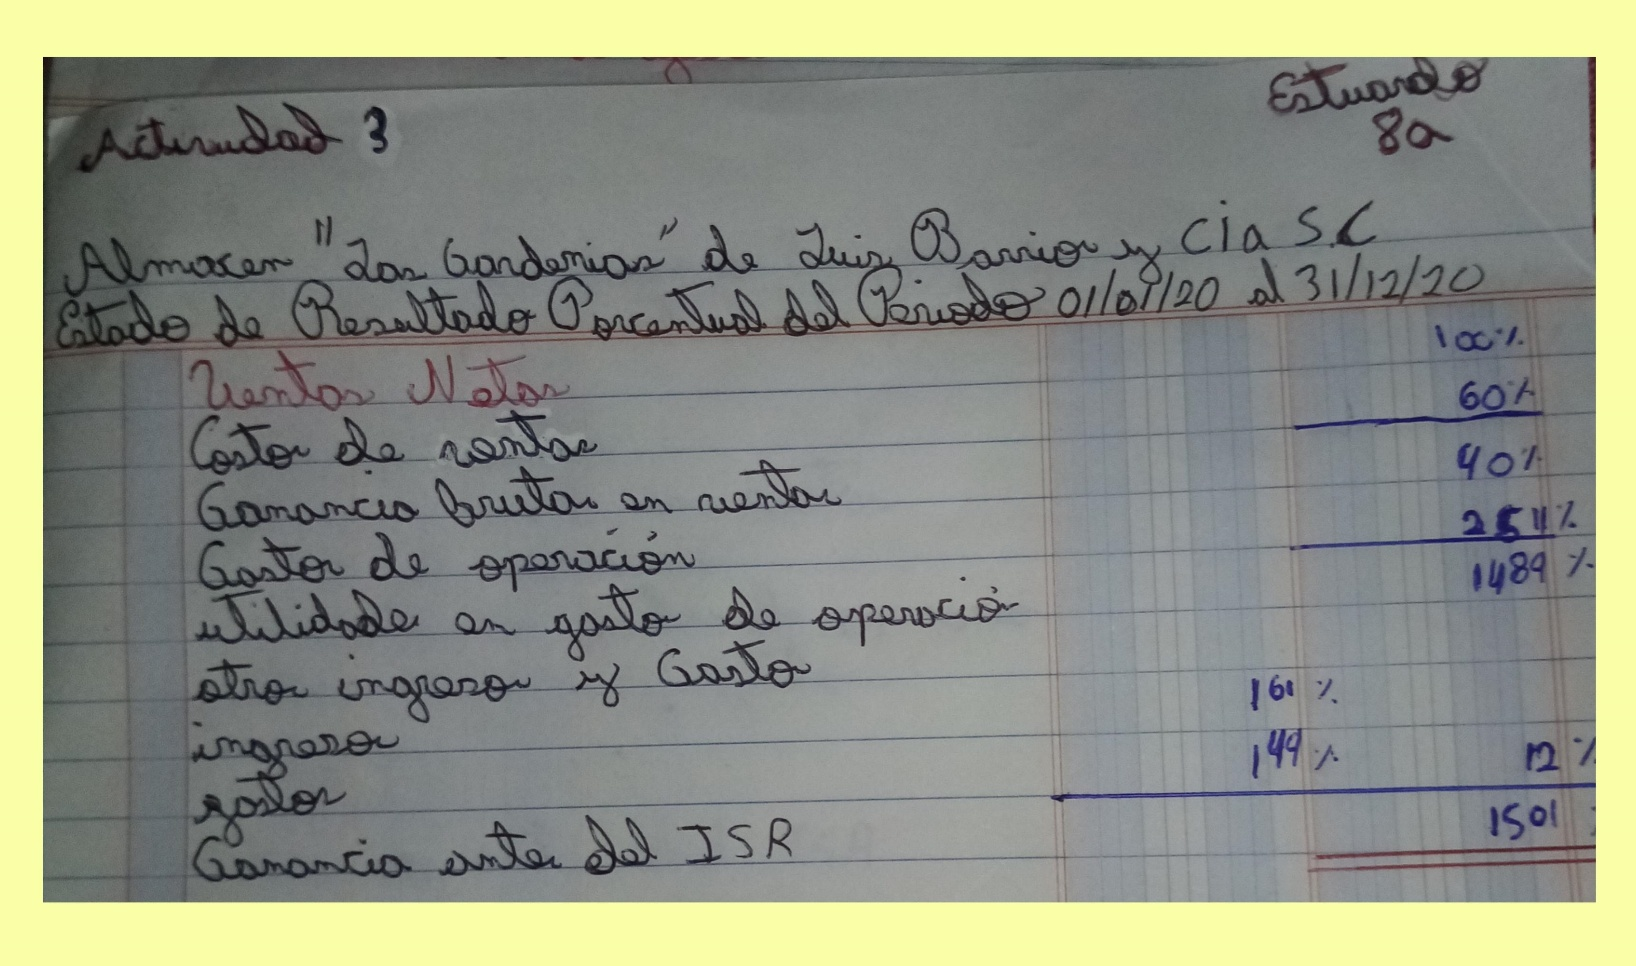 Estuardo
8a
Actividad 3
Almacen "Las Gardenias" de Luis Barrios y Cia S.C
Estado de Resultado Porcentual del Periodo 01/01/20 al 31/12/20
Ventas Netas 100%
Costos de ventas 60%
Ganancia brutas en ventas 40%
Gastos de operación 2511%
utilidades en gastos de operació 1489%
otros ingresos y Gastos
ingresos 161%
gastos 149% 12%
Ganancia antes del ISR 1501